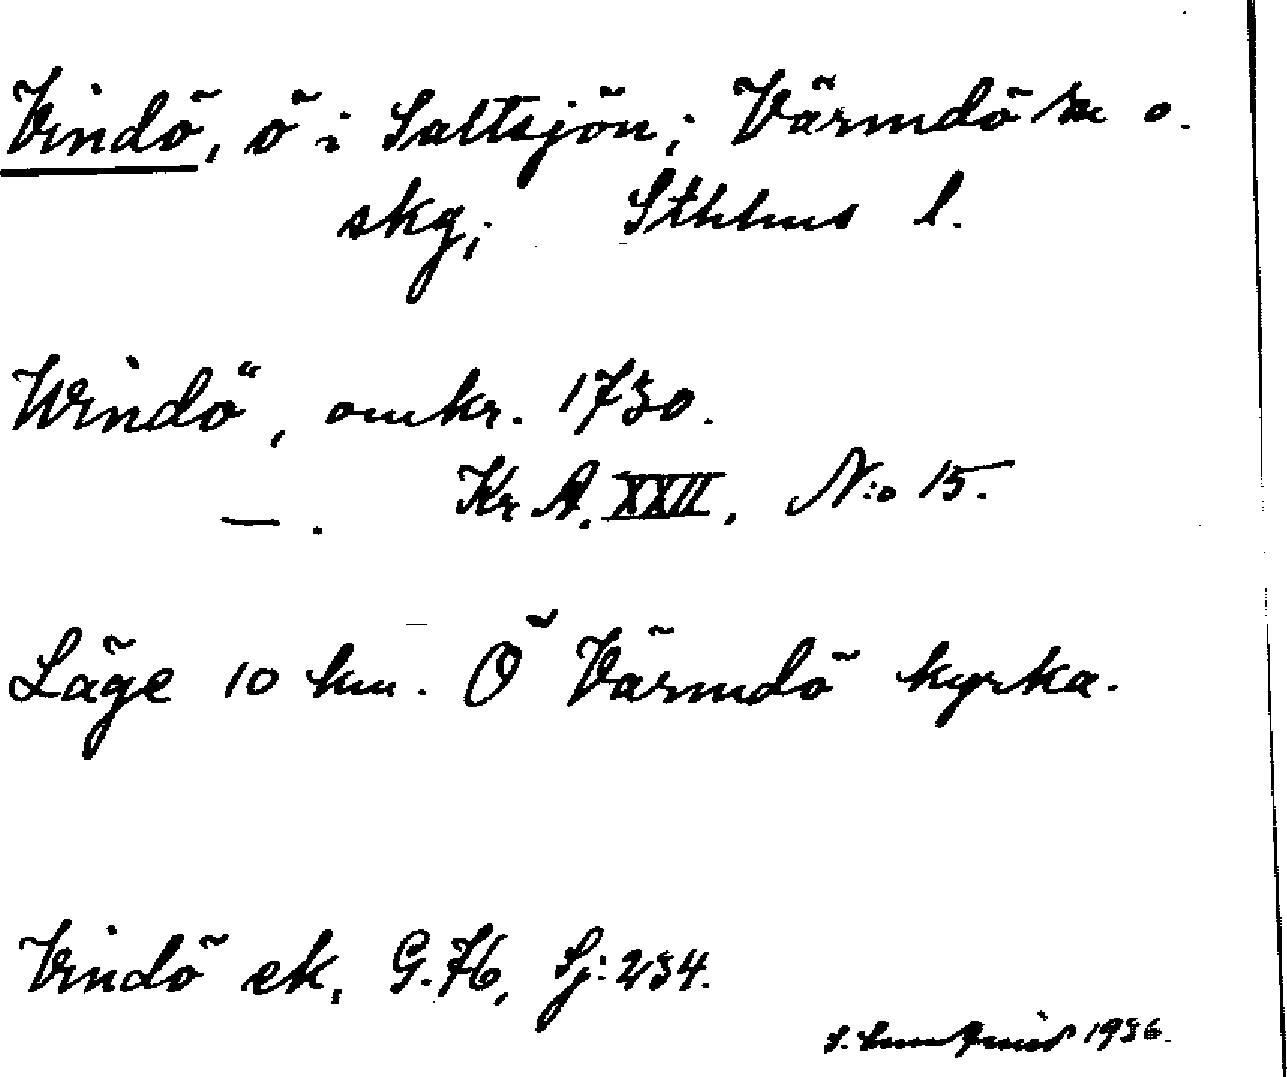 Vindö, ö i Saltsjön; Värmdö sn o.
skg; Sthlms l.
Windö, omkr. 1730.
—. Kr A. XXII, N:o 15.
Läge 10 km. Ö Värmdö kyrka.
Vindö ek, G.76, Sj:234.
1936.